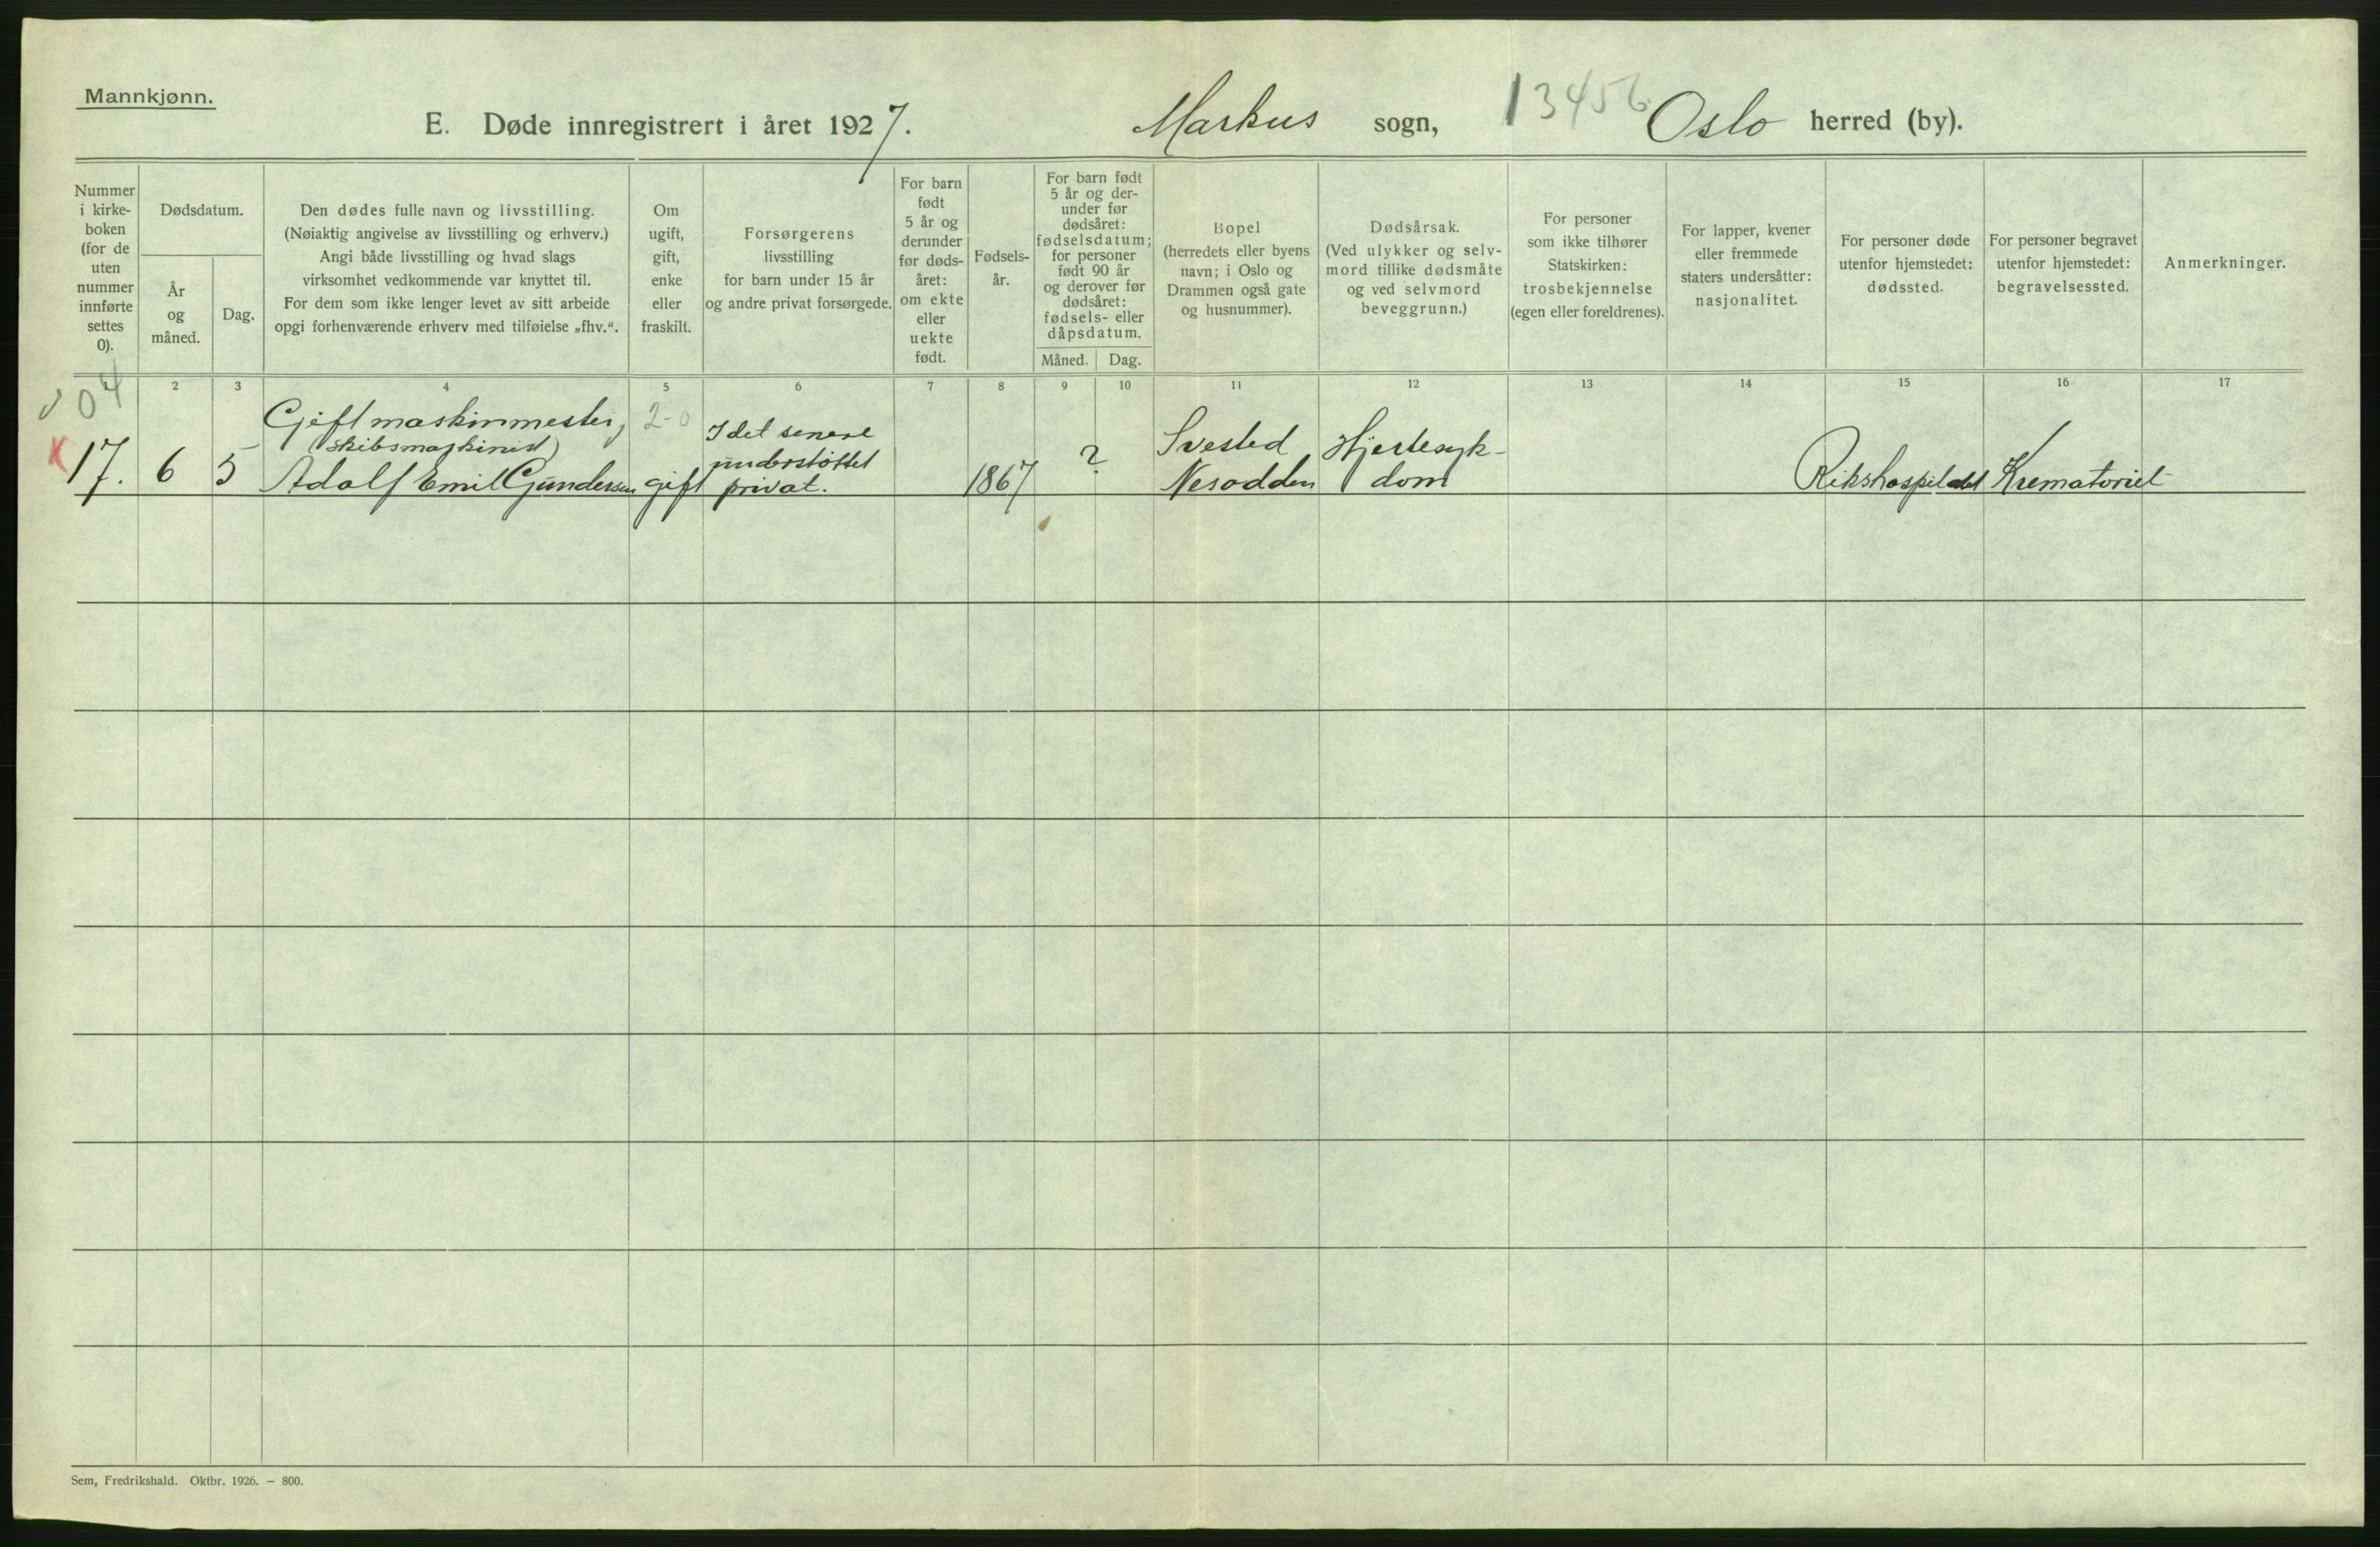 Mannkjønn.
E. Døde innregistrert i året 1927. Markus sogn, 13456 Oslo herred (by).
Nummer
i kirke-
boken
(for de
uten
nummer
innførte
settes
0).
Dødsdatum.
År
og
måned.
Dag.
Den dødes fulle navn og livsstilling.
(Nøiaktig angivelse av livsstilling og erhverv.)
Angi både livsstilling og hvad slags
virksomhet vedkommende var knyttet til.
For dem som ikke lenger levet av sitt arbeide
opgi forhenværende erhverv med tilføielse „fhv.“.
Om
ugift,
gift,
enke
eller
fraskilt.
Forsørgerens
livsstilling
for barn under 15 år
og andre privat forsørgede.
For barn
født
5 år og
derunder
før døds-
året:
om ekte
eller
uekte
født.
Fødsels-
år.
For barn født
5 år og der-
under før
dødsåret:
fødselsdatum;
for personer
født 90 år
og derover før
dødsåret:
fødsels- eller
dåpsdatum.
Måned.
Dag.
Bopel
(herredets eller byens
navn; i Oslo og
Drammen også gate
og husnummer).
Dødsårsak.
(Ved ulykker og selv-
mord tillike dødsmåte
og ved selvmord
beveggrunn.)
For personer
som ikke tilhører
Statskirken:
trosbekjennelse
(egen eller foreldrenes).
For lapper, kvener
eller fremmede
staters undersåtter:
nasjonalitet.
For personer døde
utenfor hjemstedet:
dødssted.
For personer begravet
utenfor hjemstedet:
begravelsessted.
Anmerkninger.
2 3 4 5 6 7 8 9 10 11 12 13 14 15 16 17
04
17.
6
5
Gift maskinmester,
skibsmaskinist)
Adolf Emil Gundersen
2-0
gift
I det senere
understøttet
privat.
1867
?
Svested
Nesodden
Hjertesyk-
dom
Rikshospitalet
Krematoriet
Sem, Fredrikshald. Oktbr. 1926. — 800.